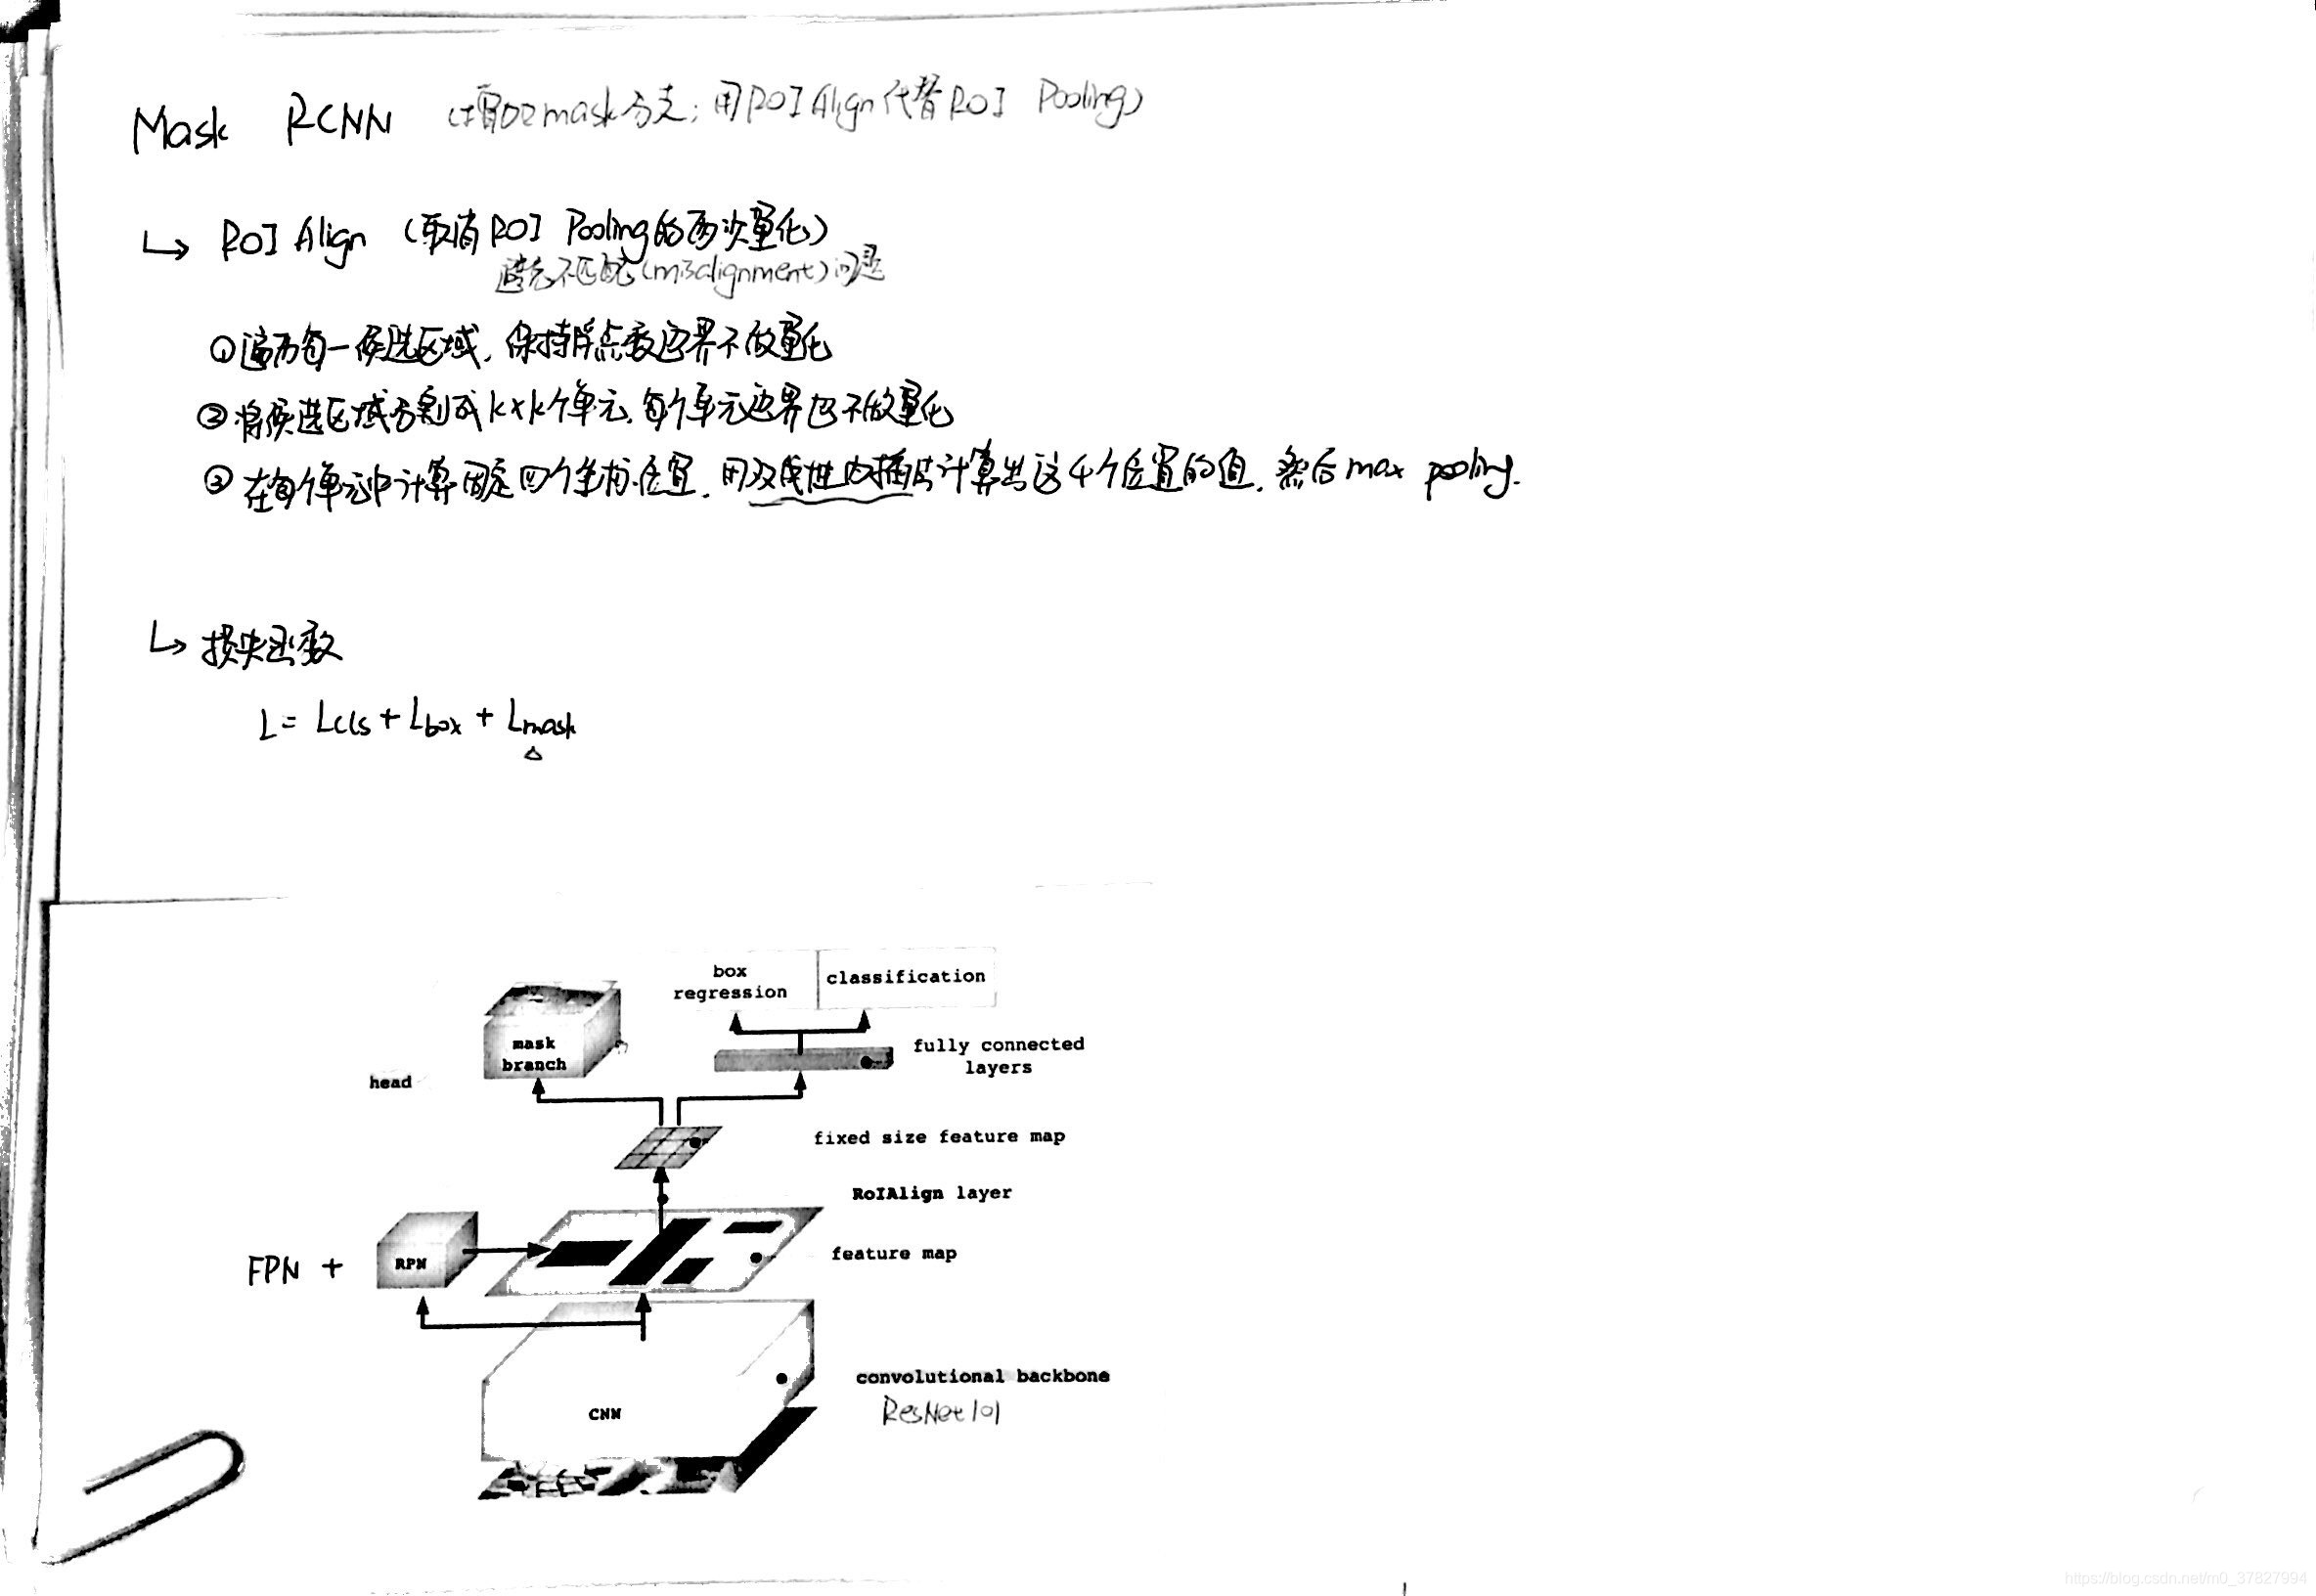 Mask RCNN (增加mask分支; 用ROI Align代替ROI Pooling)
↳ ROI Align (取消ROI Pooling的两次量化)
避免不匹配(misalignment)问题
① 遍历每一候选区域, 保持浮点数边界不做量化
② 将候选区域分割成k×k个单元, 每个单元边界也不做量化
③ 在每个单元中计算固定四个坐标位置, 用双线性内插法计算出这4个位置的值, 然后max pooling.
↳ 损失函数
L = Lcls + Lbox + Lmask
box
regression
classification
mask
branch
fully connected
layers
head
fixed size feature map
RoIAlign layer
FPN +
RPN
feature map
convolutional backbone
ResNet101
CNN
https://blog.csdn.net/m0_37827994